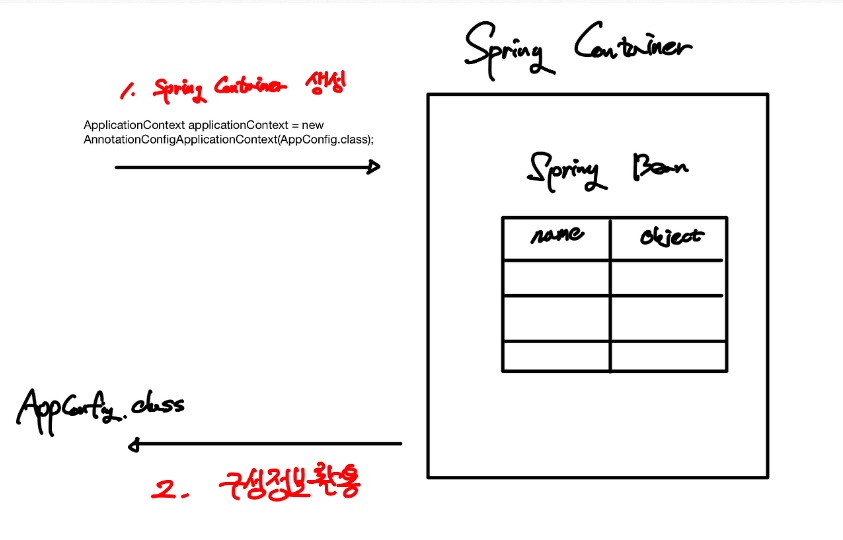 Spring Container
1. Spring Container 생성
ApplicationContext applicationContext = new
AnnotationConfigApplicationContext(AppConfig.class);
Spring Bean
name object
AppConfig.class
2. 구성정보활용